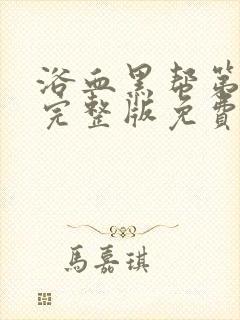 浴血黑帮第
完整版免費
馬嘉琪